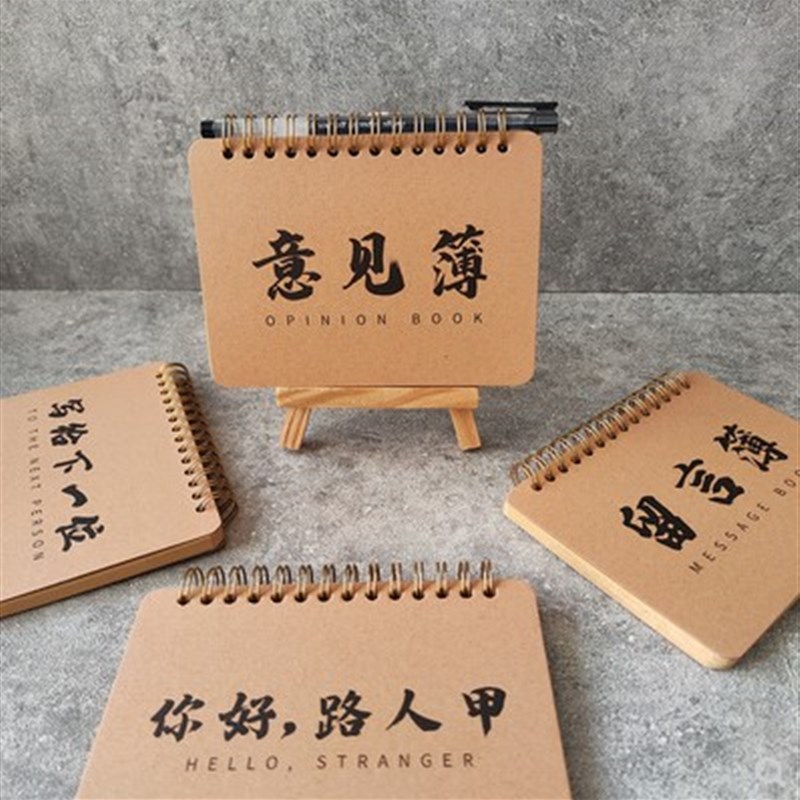 意见簿
OPINION BOOK
写给下一位
TO THE NEXT PERSON
留言簿
MESSAGE BOO
你好,路人甲
HELLO, STRANGER